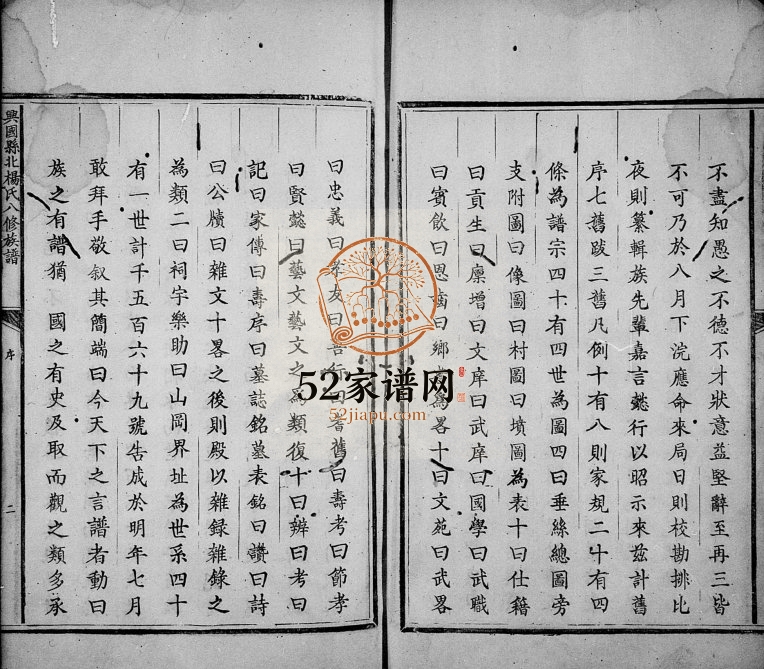 不盡知愚之不德不才狀意益堅辭至再三皆
不可乃於八月下浣應命來局日則校勘排比
夜則纂輯族先輩嘉言懿行以昭示來茲計舊
序七舊跋三舊凡例十有八則家規二十有四
條為譜宗四十有四世為圖四曰垂絲總圖旁
支附圖曰像圖曰村圖曰墳圖為表十曰仕籍
曰貢生曰廩增曰文庠曰武庠曰國學曰武職
曰賓飲曰恩 曰鄉 為畧十曰文苑曰武畧
曰忠義曰孝友曰 行曰耆舊曰壽考曰節孝
曰賢懿曰藝文藝文之為類復十曰辨曰考曰
記曰家傳曰壽序曰墓誌銘墓表銘曰讚曰詩
曰公牘曰雜文十畧之後則殿以雜録雜錄之
為類二曰祠宇樂助曰山岡界址為世系四十
有一世計千五百六十九號告成於明年七月
敢拜手敬叙其簡端曰今天下之言譜者動曰
族之有譜猶 國之有史及取而觀之類多承
興國縣北楊氏八修族譜
序
二
52家谱网
52jiapu.com